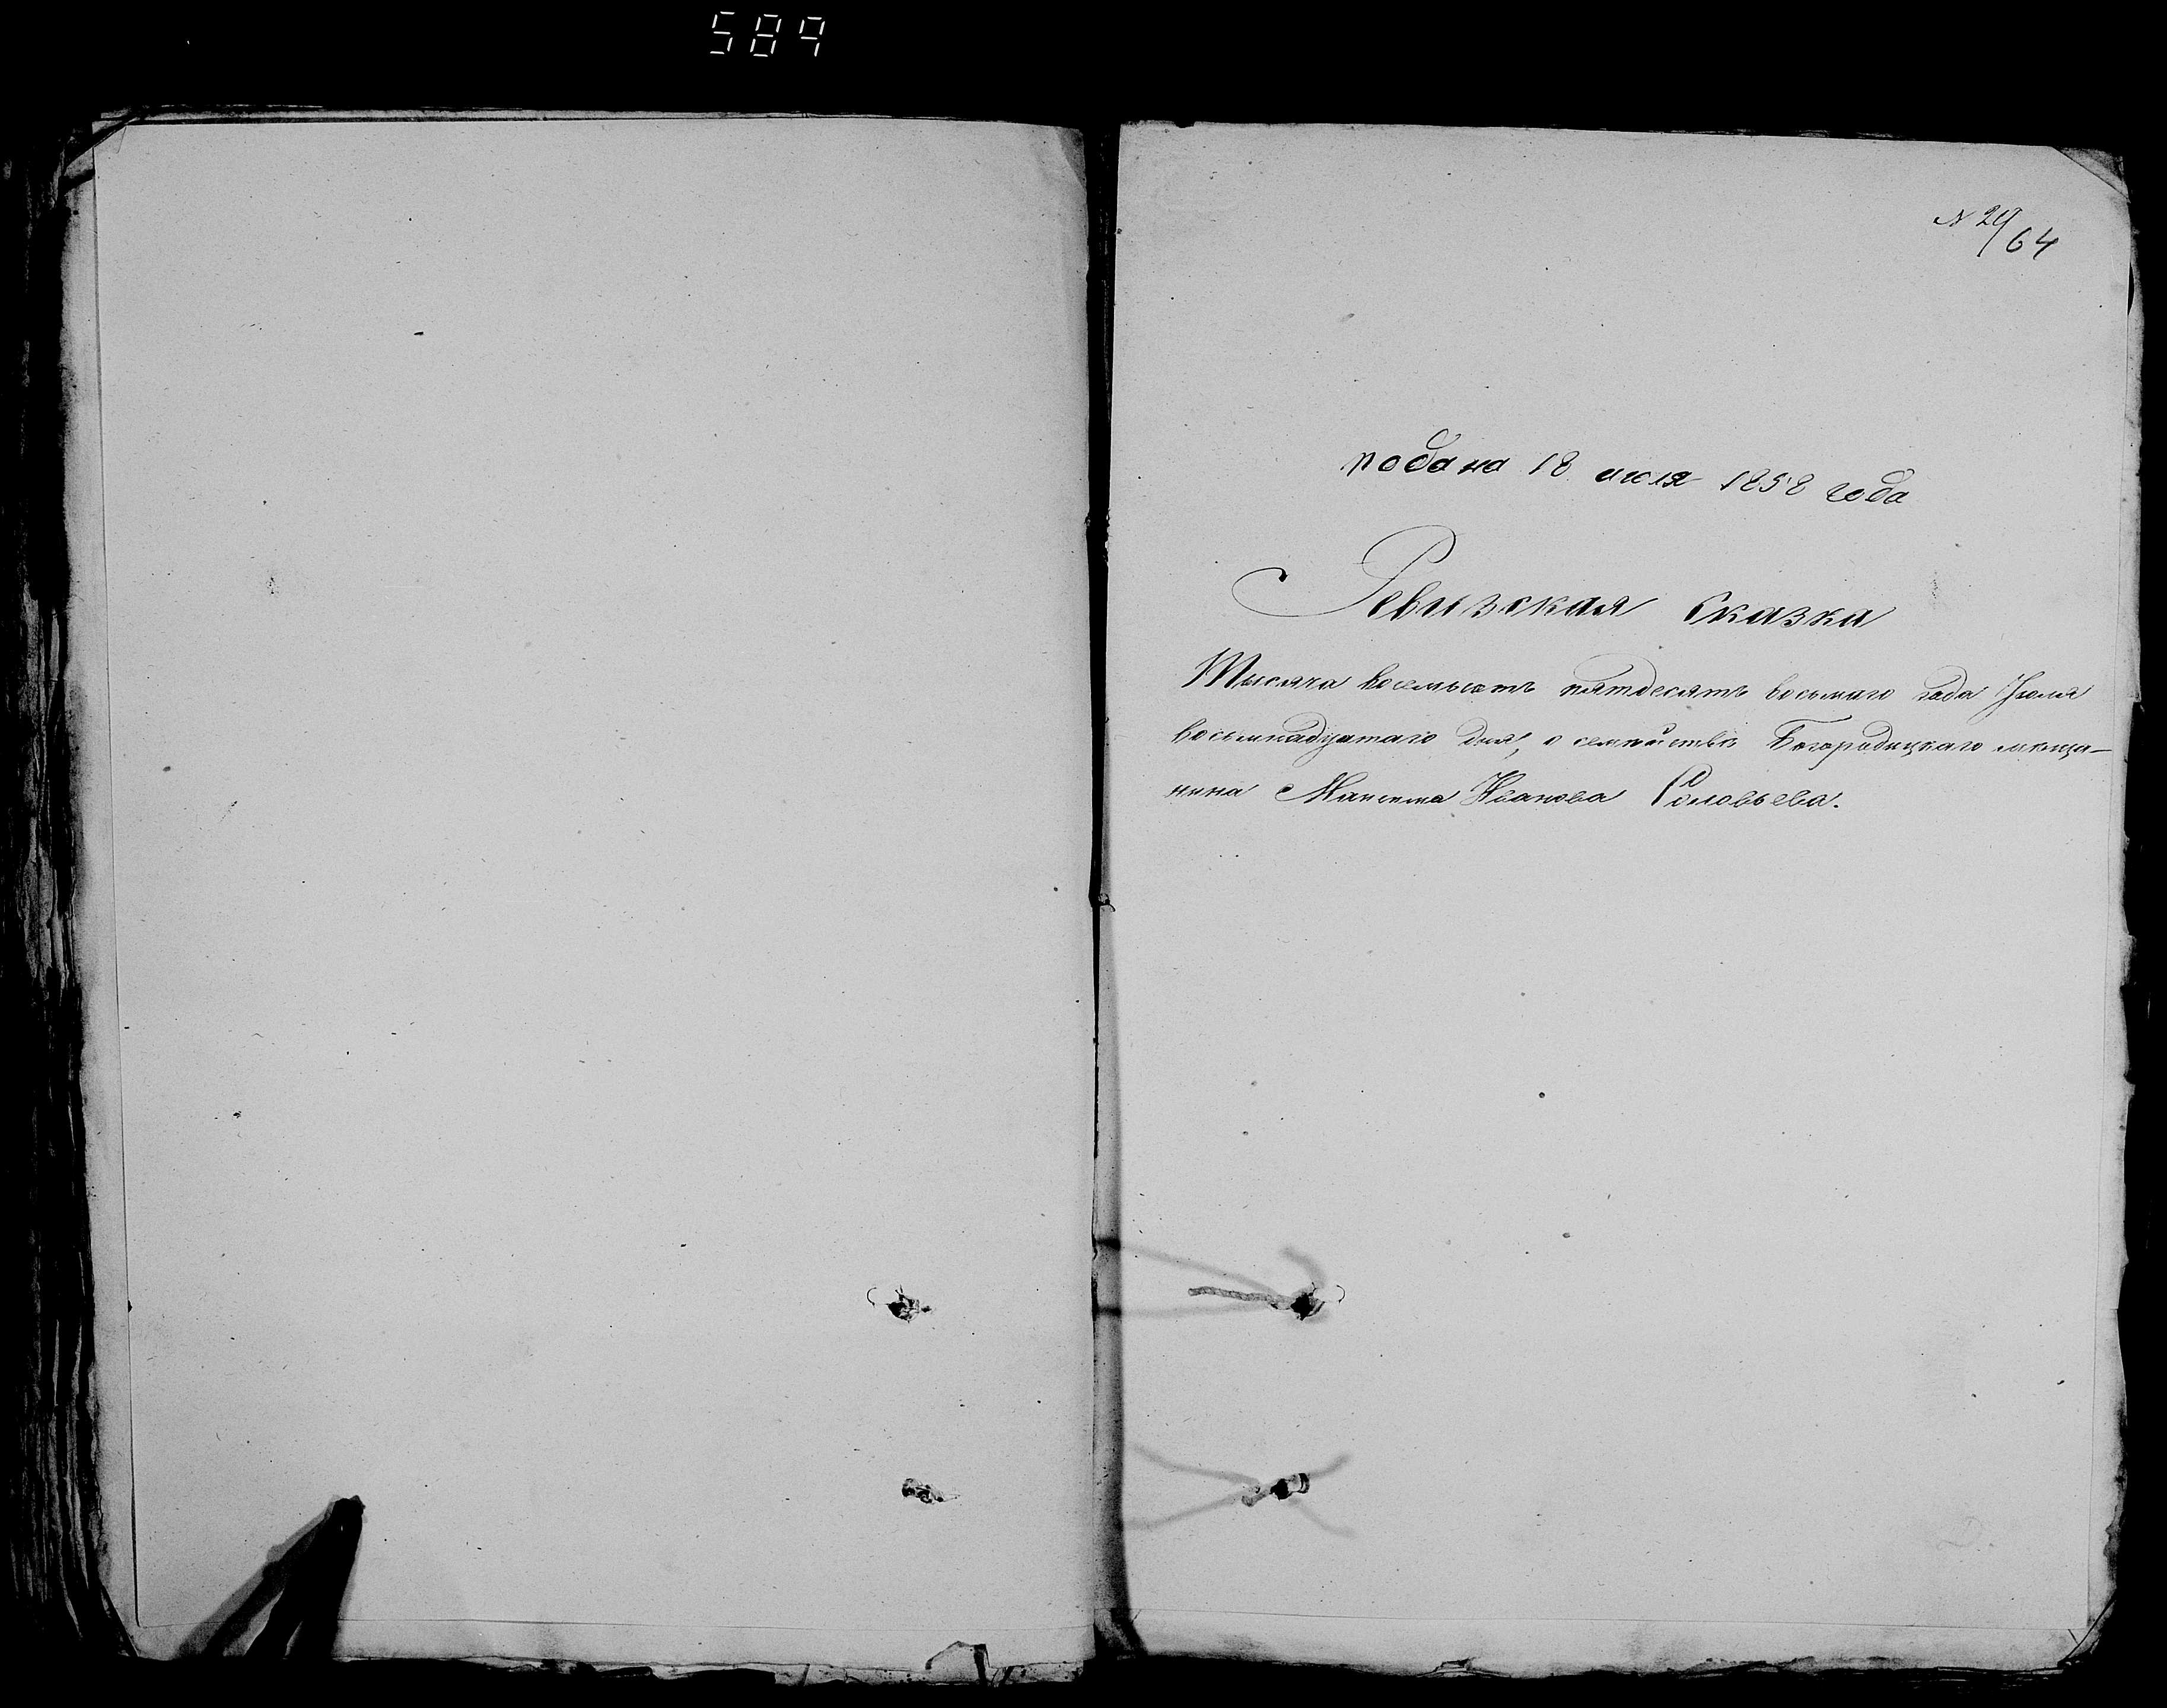 589
№ 29/64
подана 18 июля 1858 года
Ревизская Сказка
Тысяча восемьсотъ пятдесятъ восьмаго года Іюля
восьмнадцатаго дня, о семействѣ Богородицкаго мѣща-
нина Максима Иванова Соловьева.